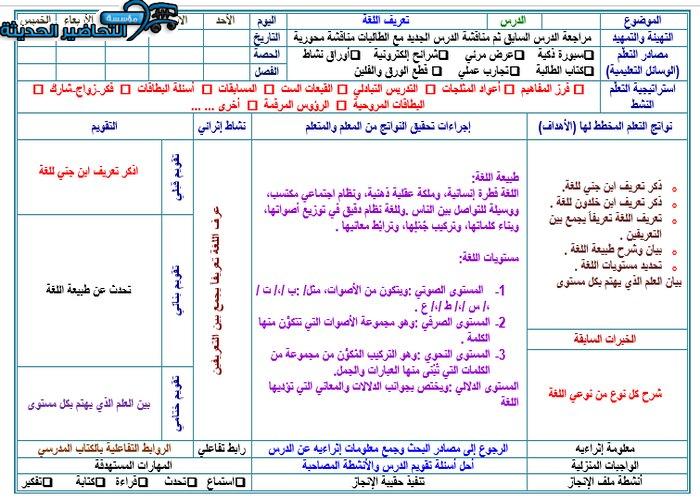 الموضوع الدرس تعريف اللغة اليوم الأحد الأربعاء الخميس
مؤسسة التحاضير الحديثة
التهيئة والتمهيد مراجعة الدرس السابق ثم مناقشة الدرس الجديد مع الطالبات مناقشة محورية التاريخ
مصادر التعلم □سبورة ذكية □عرض مرئي □شرائح إلكترونية □أوراق نشاط الحصة
(الوسائل التعليمية) □كتاب الطالبة □تجارب عملي □ قطع الورق والفلين الفصل
استراتيجية التعلم □ فرز المفاهيم □ أعواد المثلجات □ التدريس التبادلي □ القبعات الست □ المسابقات □ أسئلة البطاقات □ فكر-زواج-شارك □
النشط البطاقات المروحية □ الرؤوس المرقمة □ أخرى ... ...
نواتج التعلم المخطط لها (الأهداف) إجراءات تحقيق النواتج من المعلم والمتعلم نشاط إثرائي التقويم
ذكر تعريف ابن جني للغة.
ذكر تعريف ابن خلدون للغة .
تعريف اللغة تعريفاً يجمع بين
التعريفين .
بيان وشرح طبيعة اللغة .
تحديد مستويات اللغة .
بيان العلم الذي يهتم بكل مستوى
الخبرات السابقة
شرح كل نوع من نوعي اللغة
طبيعة اللغة:
اللغة فطرة إنسانية، وملكة عقلية ذهنية، ونظام اجتماعي مكتسب،
ووسيلة للتواصل بين الناس .وللغة نظام دقيق في توزيع أصواتها،
وبناء كلماتها، وتركيب جُمَلِها، وترابُط معانيها .
مستويات اللغة:
1- المستوى الصوتي :ويتكون من الأصوات، مثل/ :ب /،/ ت /
،/ س /،/ ط /،/ ع .
2- المستوى الصرفي :وهو مجموعة الأصوات التي تتكوّن منها
الكلمة .
3- المستوى النحوي :وهو التركيب المُكوَّن من مجموعة من
الكلمات التي تُبْنَى منها العبارات والجمل.
المستوى الدلالي :ويختص بجوانب الدلالات والمعاني التي تؤديها
اللغة
عرف اللغة تعريفاً يجمع بين التعريفين
تقويم قبلي
اذكر تعريف ابن جني للغة
تقويم بنائي
تحدث عن طبيعة اللغة
تقويم ختامي
بين العلم الذي يهتم بكل مستوى
معلومة إثرائيه الرجوع إلى مصادر البحث وجمع معلومات إثراءيه عن الدرس رابط تفاعلي الروابط التفاعلية بالكتاب المدرسي
الواجبات المنزلية أحل أسئلة تقويم الدرس والأنشطة المصاحبة المهارات المستهدفة
أنشطة ملف الإنجاز تنفيذ حقيبة الإنجاز □ استماع □ تحدث □ قراءة □ كتابة □ تفكير